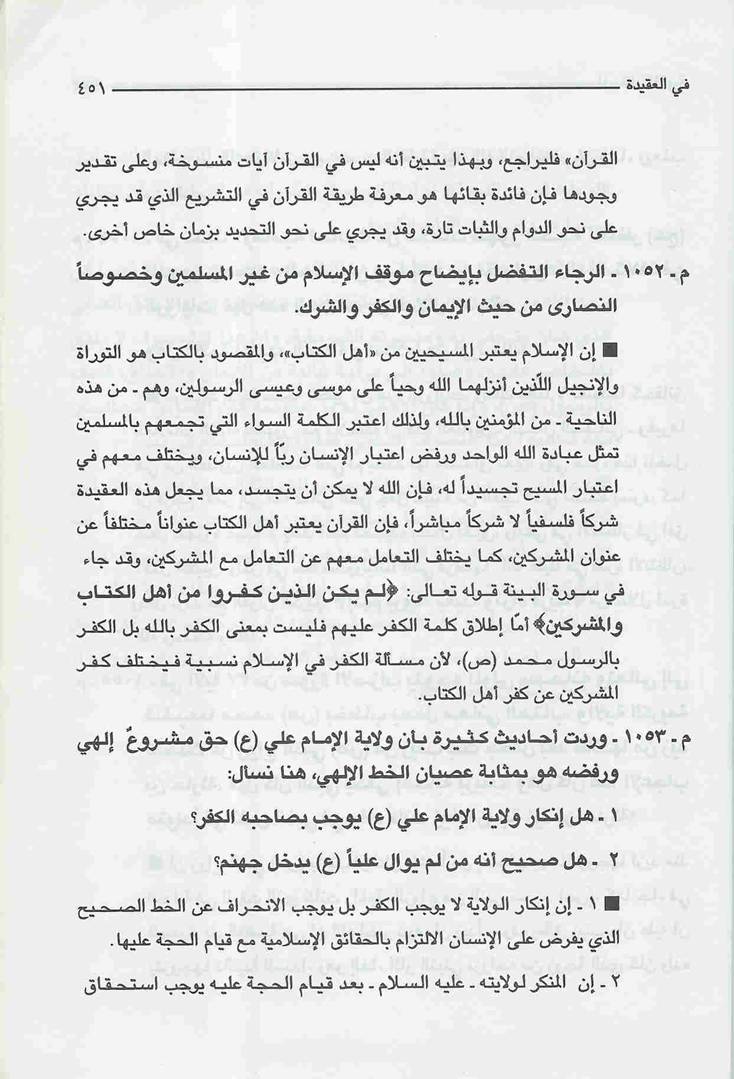 في العقيدة ٤٥١
القرآن» فليراجع، وبهذا يتبين أنه ليس في القرآن آيات منسوخة، وعلى تقدير
وجودها فإن فائدة بقائها هو معرفة طريقة القرآن في التشريع الذي قد يجري
على نحو الدوام والثبات تارة، وقد يجري على نحو التحديد بزمان خاص أخرى.
م ـ ١٠٥٢ ـ الرجاء التفضل بإيضاح موقف الإسلام من غير المسلمين وخصوصاً
النصارى من حيث الإيمان والكفر والشرك.
■ إن الإسلام يعتبر المسيحيين من «أهل الكتاب»، والمقصود بالكتاب هو التوراة
والإنجيل اللّذين أنزلهما الله وحياً على موسى وعيسى الرسولين، وهم ـ من هذه
الناحية ـ من المؤمنين بالله، ولذلك اعتبر الكلمة السواء التي تجمعهم بالمسلمين
تمثل عبادة الله الواحد ورفض اعتبار الإنسان ربّاً للإنسان، ويختلف معهم في
اعتبار المسيح تجسيداً له، فإن الله لا يمكن أن يتجسد، مما يجعل هذه العقيدة
شركاً فلسفياً لا شركاً مباشراً، فإن القرآن يعتبر أهل الكتاب عنواناً مختلفاً عن
عنوان المشركين، كما يختلف التعامل معهم عن التعامل مع المشركين، وقد جاء
في سورة البينة قوله تعالى: ﴿لم يكن الذين كفروا من أهل الكتاب
والمشركين﴾ أمّا إطلاق كلمة الكفر عليهم فليست بمعنى الكفر بالله بل الكفر
بالرسول محمد (ص)، لأن مسألة الكفر في الإسلام نسبية فيختلف كفر
المشركين عن كفر أهل الكتاب.
م ـ ١٠٥٣ ـ وردت أحاديث كثيرة بأن ولاية الإمام علي (ع) حق مشروعٌ إلهي
ورفضه هو بمثابة عصيان الخط الإلهي، هنا نسأل:
١ ـ هل إنكار ولاية الإمام علي (ع) يوجب بصاحبه الكفر؟
٢ ـ هل صحيح أنه من لم يوال علياً (ع) يدخل جهنم؟
■ ١ ـ إن إنكار الولاية لا يوجب الكفر بل يوجب الانحراف عن الخط الصحيح
الذي يفرض على الإنسان الالتزام بالحقائق الإسلامية مع قيام الحجة عليها.
٢ ـ إن المنكر لولايته ـ عليه السلام ـ بعد قيام الحجة عليه يوجب استحقاق